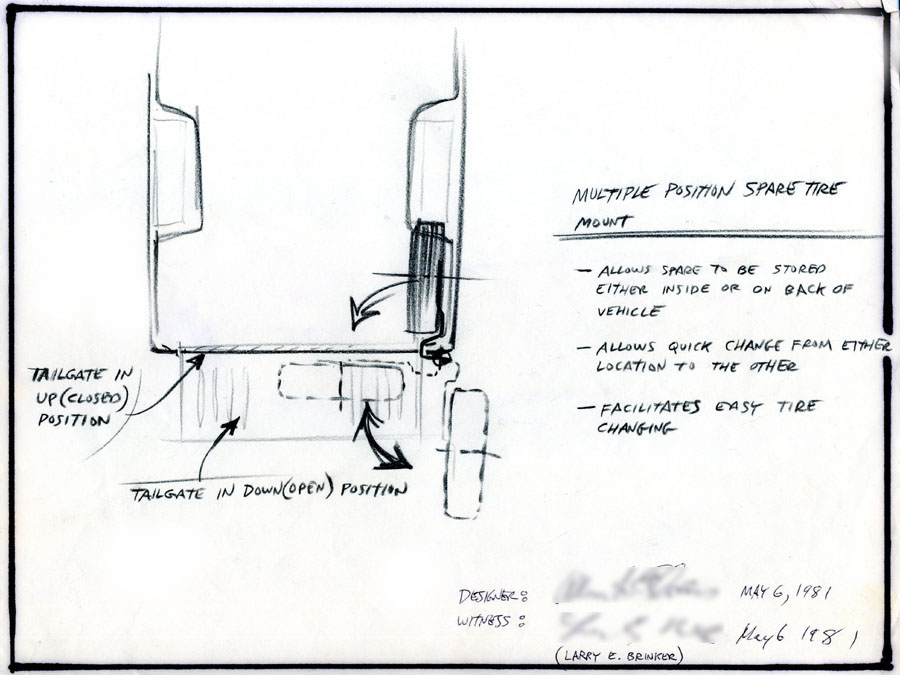 MULTIPLE POSITION SPARE TIRE
MOUNT
— ALLOWS SPARE TO BE STORED
EITHER INSIDE OR ON BACK OF
VEHICLE
— ALLOWS QUICK CHANGE FROM EITHER
LOCATION TO THE OTHER
— FACILITATES EASY TIRE
CHANGING
TAILGATE IN
UP (CLOSED)
POSITION
TAILGATE IN DOWN (OPEN) POSITION
DESIGNER: MAY 6, 1981
WITNESS: May 6 1981
(LARRY E. BRINKER)